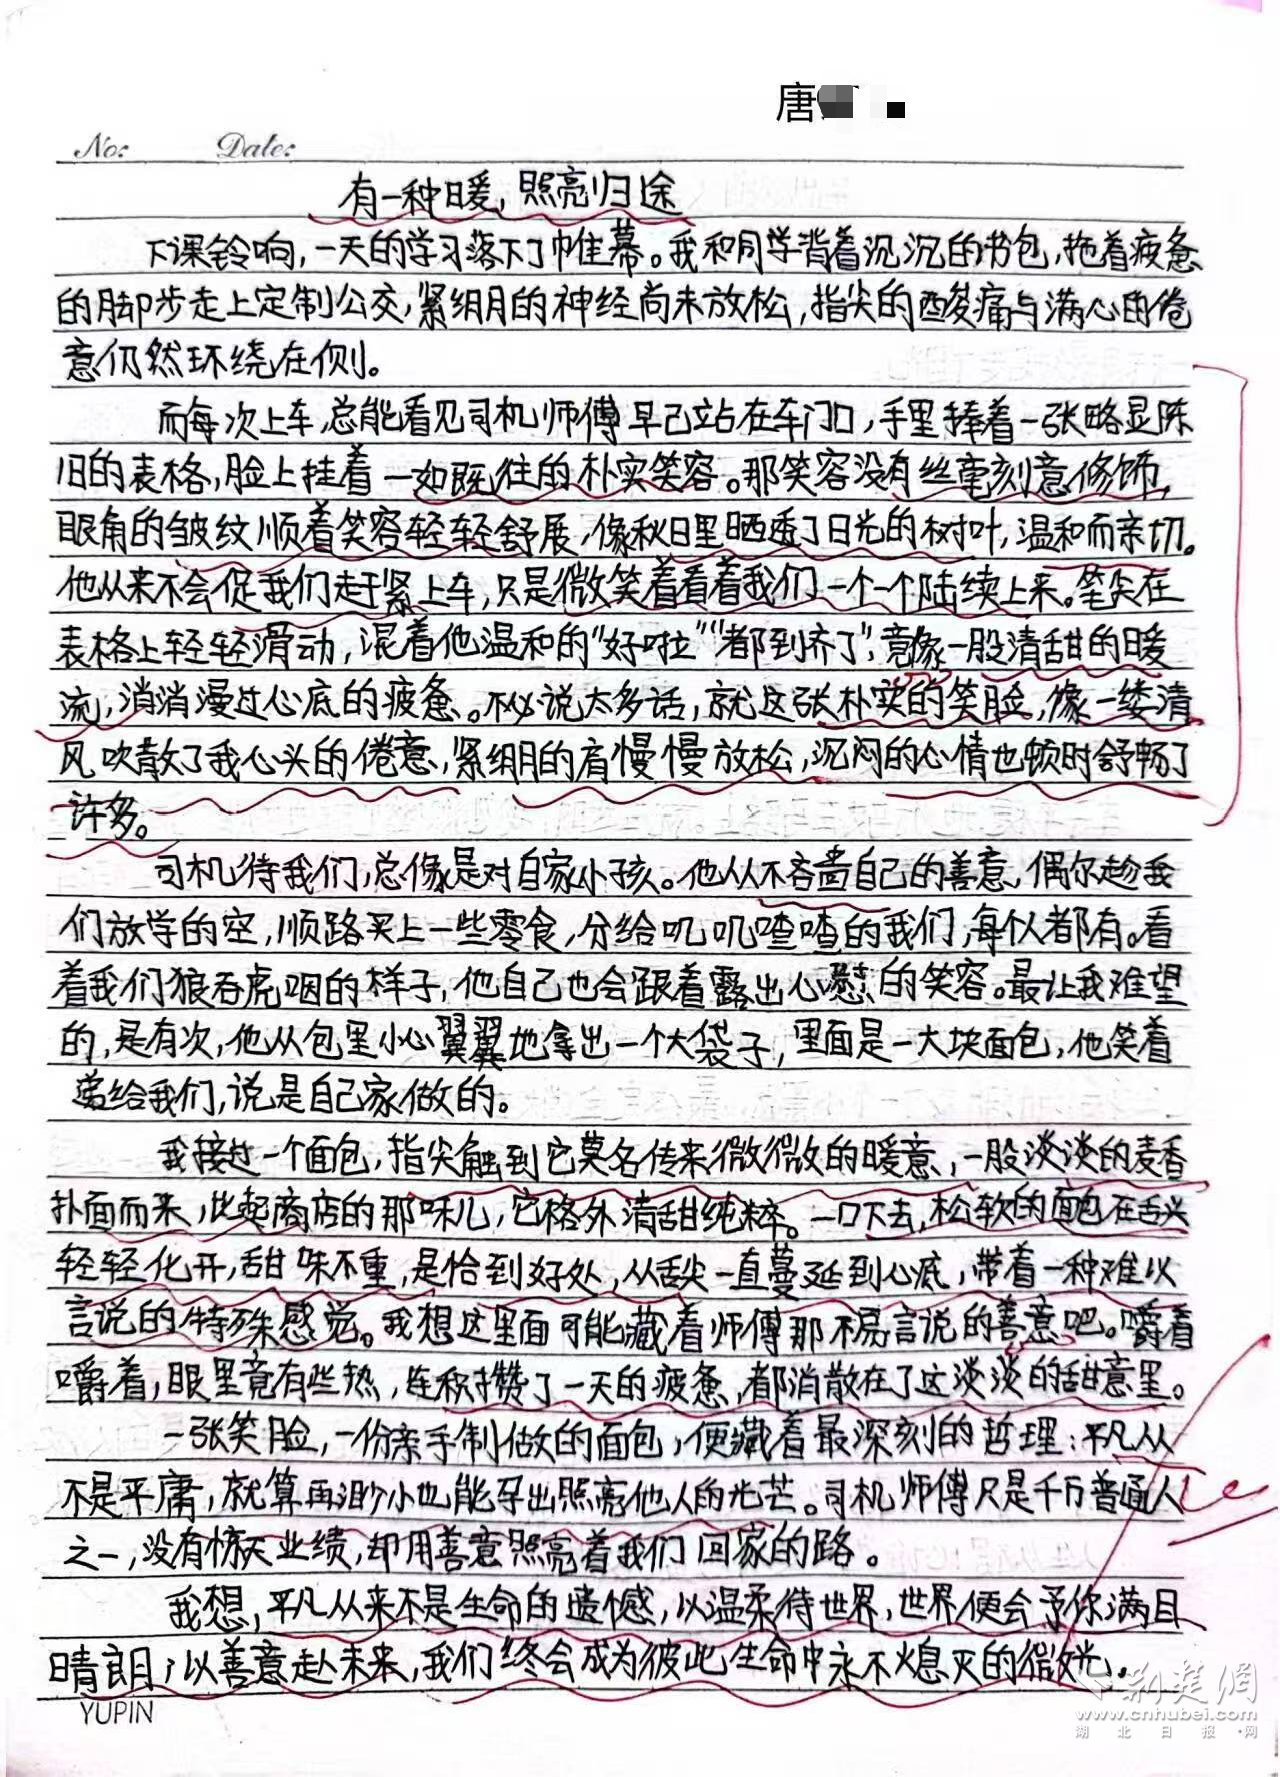 唐
No: Date:
有一种暖，照亮归途
下课铃响，一天的学习落下了帷幕。我和同学背着沉沉的书包，拖着疲惫
的脚步走上定制公交，紧绷的神经尚未放松，指尖的酸痛与满心的倦
意仍然环绕在侧。
而每次上车，总能看见司机师傅早已站在车门口，手里捧着一张略显陈
旧的表格，脸上挂着一如既往的朴实笑容。那笑容没有丝毫刻意修饰，
眼角的皱纹顺着笑容轻轻舒展，像秋日里晒透了日光的树叶，温和而亲切。
他从来不会促我们赶紧上车，只是微笑着看着我们一个一个陆续上来。笔尖在
表格上轻轻滑动，混着他温和的“好啦”“都到齐了”，竟像一股清甜的暖
流，消消漫过心底的疲惫。不必说太多话，就这张朴实的笑脸，像一缕清
风吹散了我心头的倦意，紧绷的肩慢慢放松，沉闷的心情也顿时舒畅了
许多。
司机待我们，总像是对自家小孩。他从不吝啬自己的善意，偶尔趁我
们放学的空，顺路买上一些零食，分给叽叽喳喳的我们，每个人都有。看
着我们狼吞虎咽的样子，他自己也会跟着露出心慰的笑容。最让我难望
的，是有次，他从包里小心翼翼地拿出一个大袋子，里面是一大块面包，他笑着
递给我们，说是自己家做的。
我接过一个面包，指尖触到它莫名传来微微的暖意，一股淡淡的麦香
扑面而来，比起商店的那味儿，它格外清甜纯粹。一口下去，松软的面包在舌尖
轻轻化开，甜味不重，是恰到好处，从舌尖一直蔓延到心底，带着一种难以
言说的特殊感觉。我想这里面可能藏着师傅那不易言说的善意吧。嚼着
嚼着，眼里竟有些热，连积攒了一天的疲惫，都消散在了这淡淡的甜意里。
一张笑脸，一份亲手制做的面包，便藏着最深刻的哲理：平凡从
不是平庸，就算再渺小也能孕出照亮他人的光芒。司机师傅只是千万普通人
之一，没有惊天业绩，却用善意照亮着我们回家的路。
我想，平凡从来不是生命的遗憾，以温柔待世界，世界便会予你满目
晴朗；以善意赴未来，我们终会成为彼此生命中永不熄灭的微光。
YUPIN
荆楚网
www.cnhubei.com
湖北日报·网